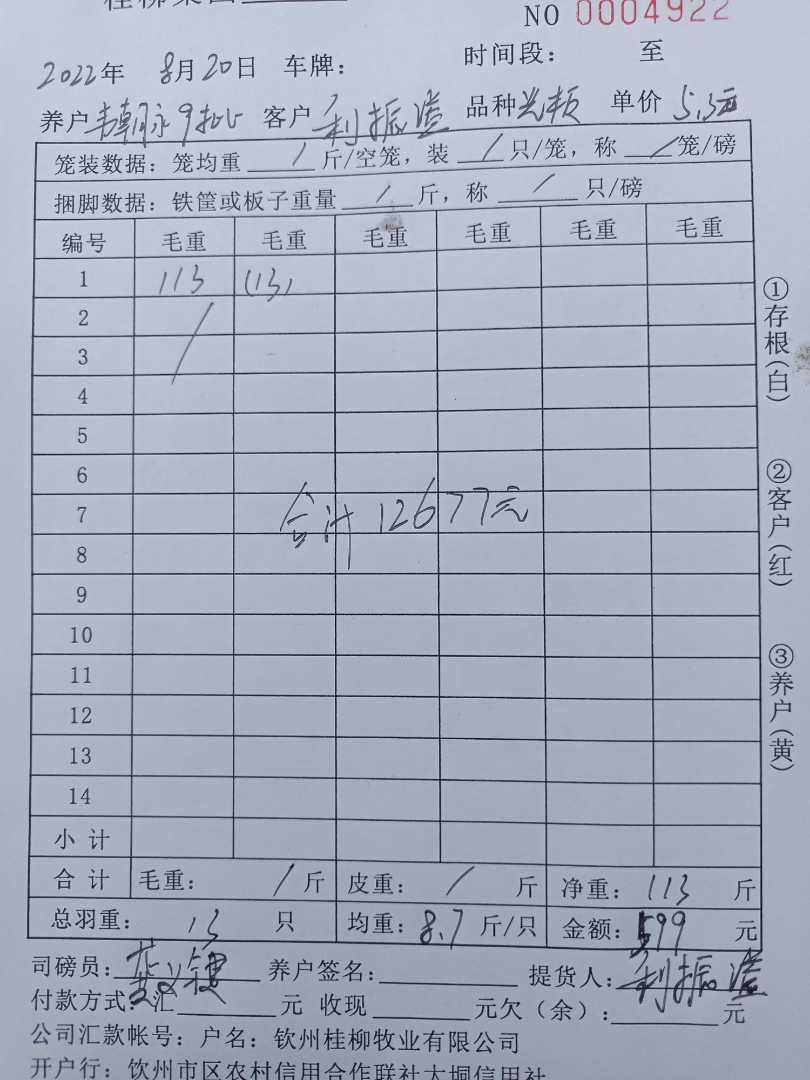 NO 0004922
2022年 8月20日 车牌： 时间段： 至
养户 韦朝脉9批 客户 利振溢 品种 单价 5.3元
笼装数据：笼均重 / 斤/空笼，装 / 只/笼，称 / 笼/磅
捆脚数据：铁筐或板子重量 / 斤，称 / 只/磅
编号 毛重 毛重 毛重 毛重 毛重 毛重
1 113 (13)
2 /
3
4
5
6
7 合计 12677元
8
9
10
11
12
13
14
小计
合计 毛重： / 斤 皮重： / 斤 净重：113 斤
总羽重： 13 只 均重：8.7 斤/只 金额：599 元
司磅员： 养户签名： 提货人：利振溢
付款方式：汇 元 收现 元欠（余）： 元
公司汇款帐号：户名：钦州桂柳牧业有限公司
开户行：钦州市区农村信用合作联社大垌信用社
①存根(白)
②客户(红)
③养户(黄)